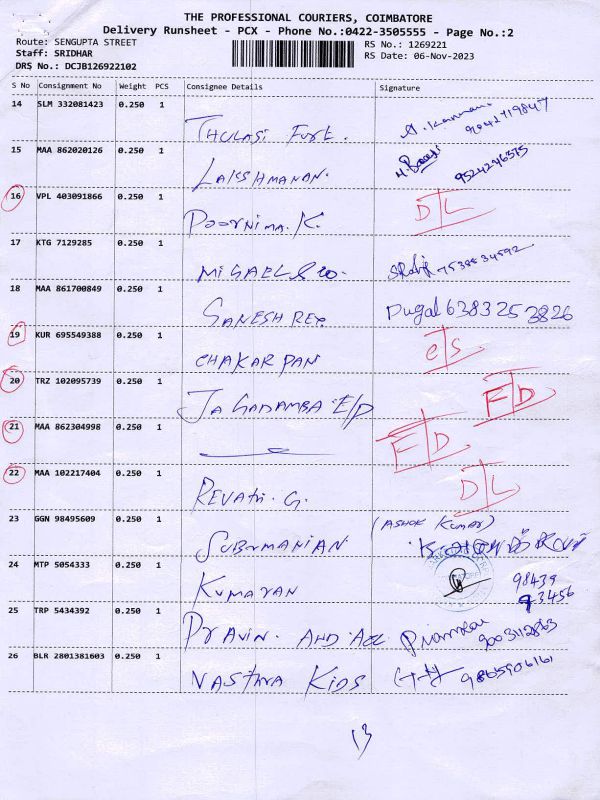 THE PROFESSIONAL COURIERS, COIMBATORE
Delivery Runsheet - PCX - Phone No.:0422-3505555 - Page No.:2
Route: SENGUPTA STREET
Staff: SRIDHAR
DRS No.: DCJB126922102
RS No.: 1269221
RS Date: 06-Nov-2023
S No Consignment No Weight PCS Consignee Details Signature
14 SLM 332081423 0.250 1
THULASI
15 MAA 862020126 0.250 1
LAKSHMANAN. 9524246375
16 VPL 403091866 0.250 1
Poornima. K. D/L
17 KTG 7129285 0.250 1
MIGAEL & co.
18 MAA 861700849 0.250 1
GANESH REX Dugal 6383253826
19 KUR 695549388 0.250 1
CHAKAR PAN C/S
20 TRZ 102095739 0.250 1
JAGADAMBA E/D F/D
21 MAA 862304998 0.250 1
F/D
22 MAA 102217404 0.250 1
REVATHI. G. D/L
23 GGN 98495609 0.250 1
SUBRMANIAN (ASHOK KUMAR)
24 MTP 5054333 0.250 1
KUMARAN 98439
93456
25 TRP 5434392 0.250 1
PRAVIN. AND
26 BLR 2801381603 0.250 1
VASTHRA KIDS 9865906161
13